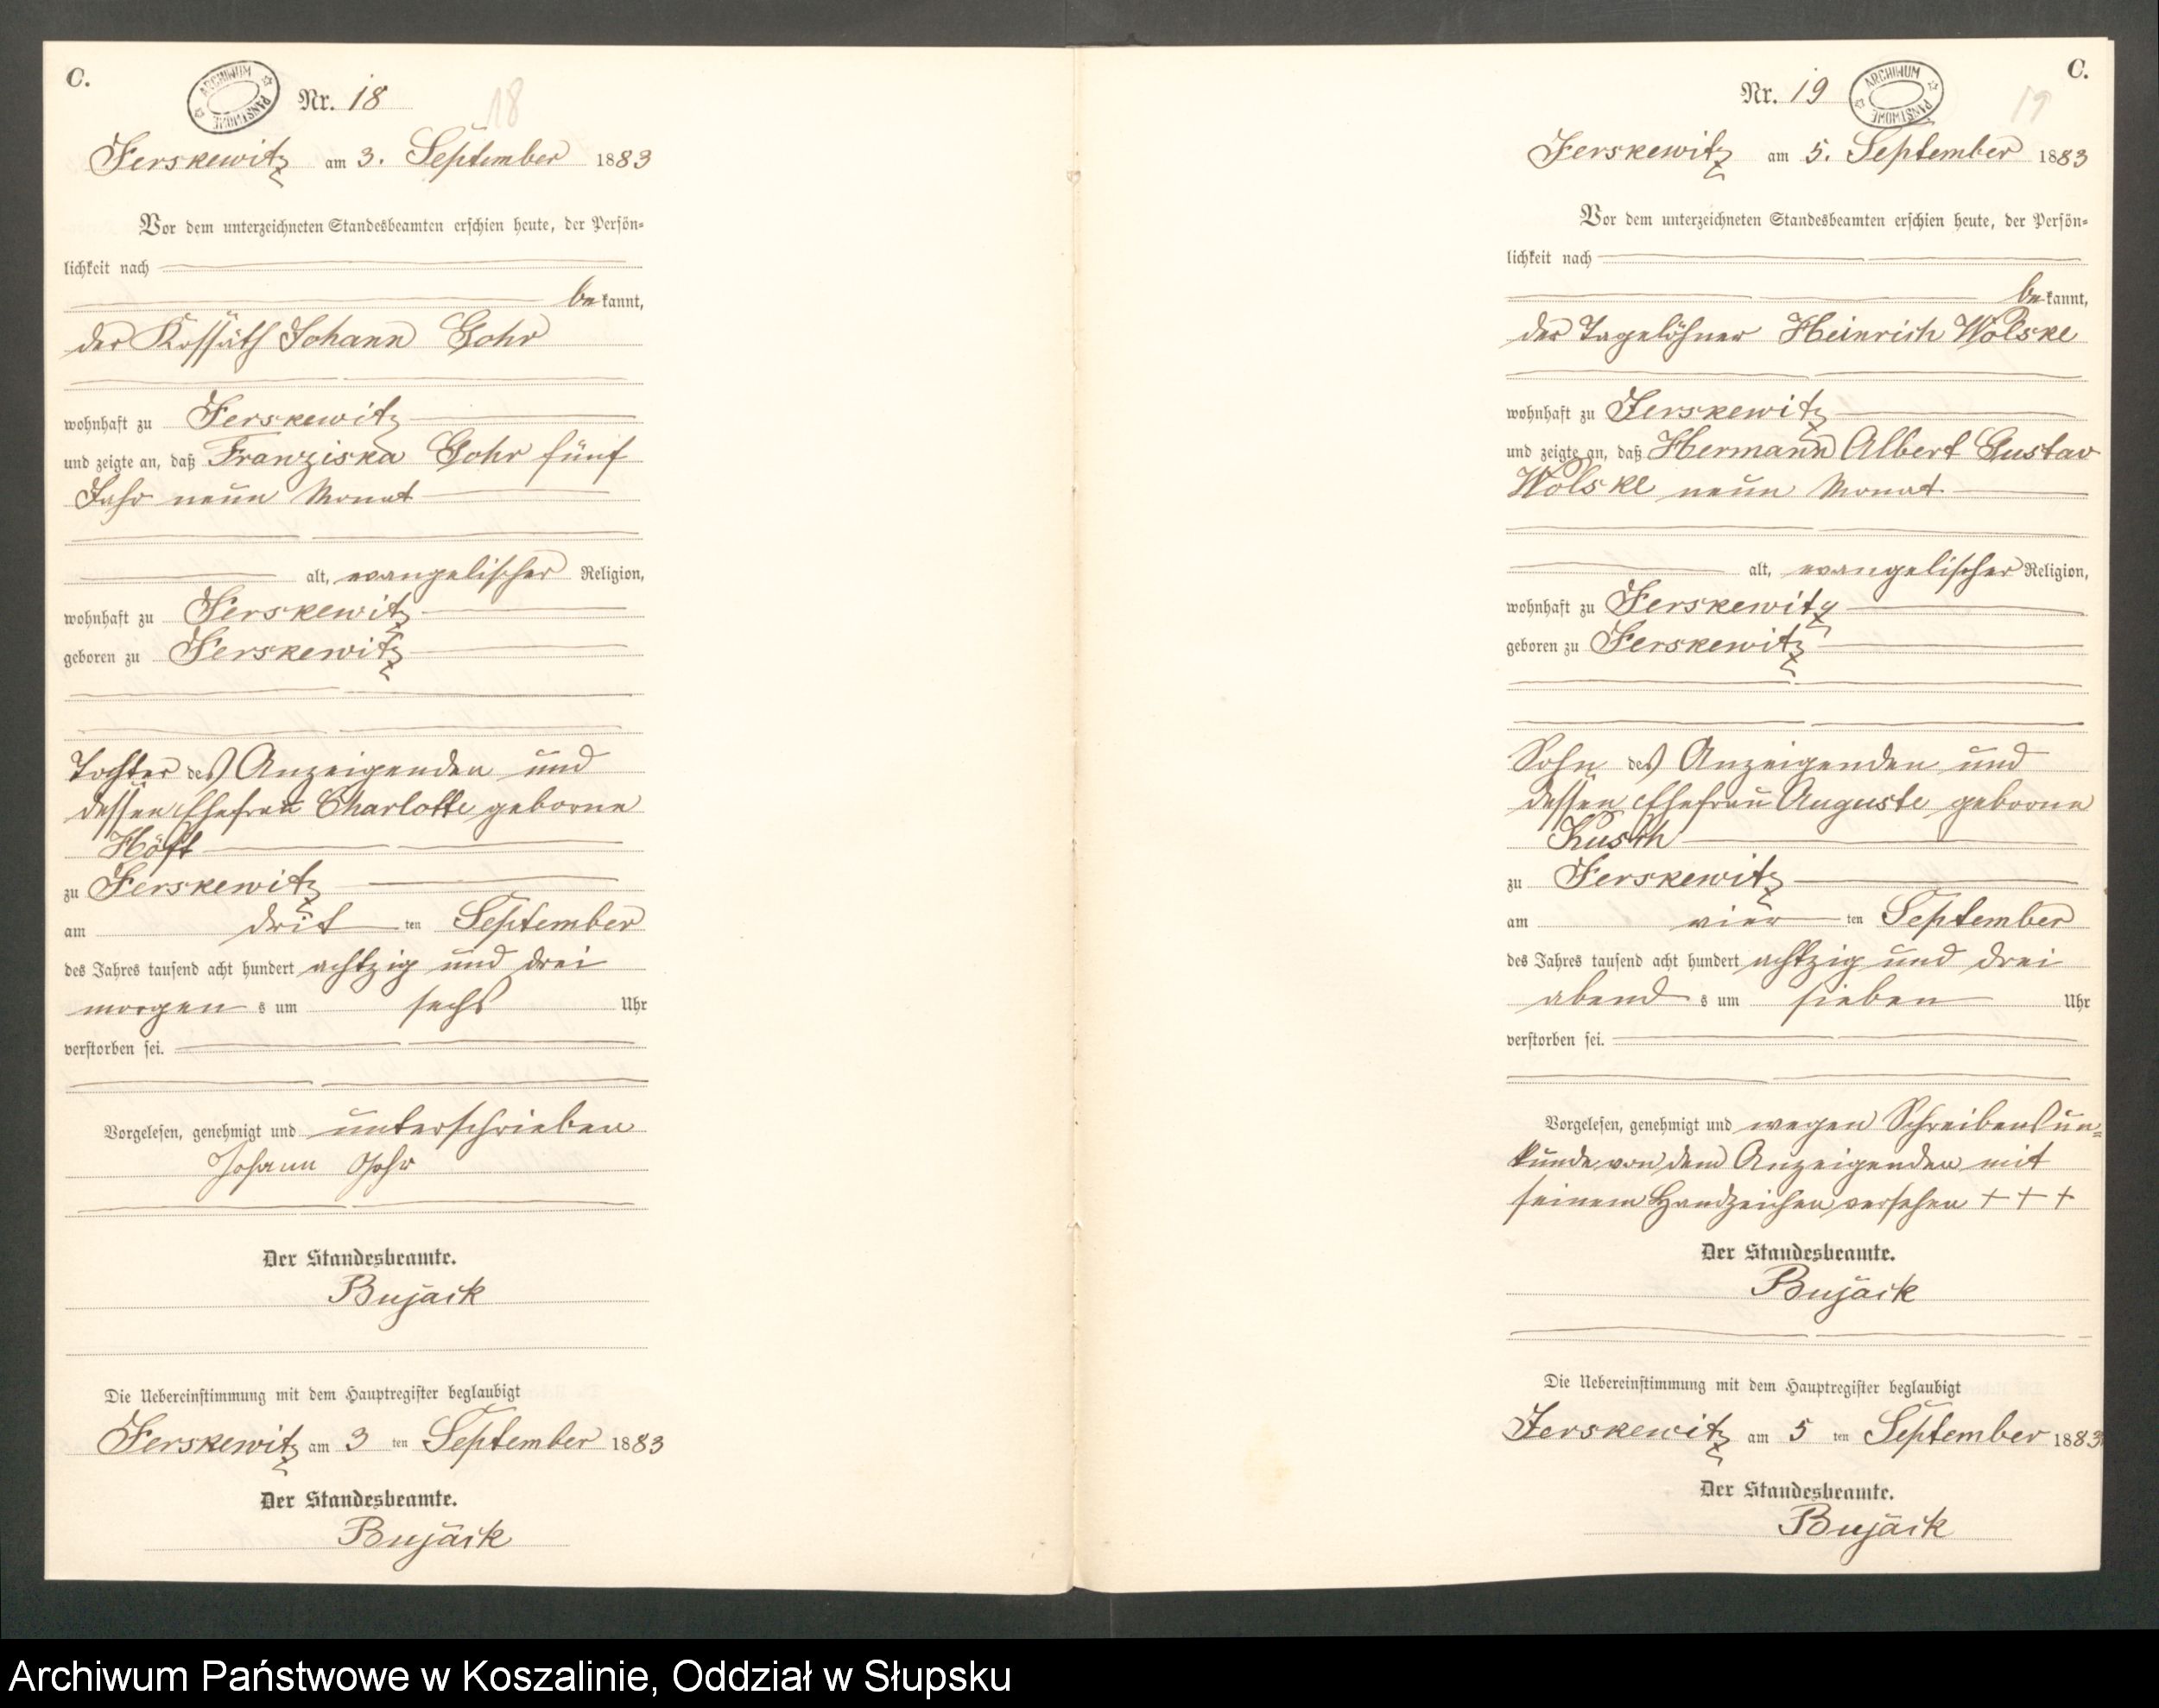 C.
ARCHIWUM PAŃSTWOWE
Nr. 18
18
Jerskewitz am 3. September 1883
Vor dem unterzeichneten Standesbeamten erschien heute, der Persön-
lichkeit nach
be kannt,
der Kossäth Johann Gohr
wohnhaft zu Jerskewitz
und zeigte an, daß Franziska Gohr fünf
Jahr neun Monat
alt, evangelischer Religion,
wohnhaft zu Jerskewitz
geboren zu Jerskewitz
Tochter des Anzeigenden und
dessen Ehefrau Charlotte geborne
Höft
zu Jerskewitz
am drit ten September
des Jahres tausend acht hundert achtzig und drei
morgen s um sechs Uhr
verstorben sei.
Vorgelesen, genehmigt und unterschrieben
Johann Gohr
Der Standesbeamte.
Bujack
Die Uebereinstimmung mit dem Hauptregister beglaubigt
Jerskewitz am 3 ten September 1883
Der Standesbeamte.
Bujack
C.
Nr. 19
ARCHIWUM PAŃSTWOWE
19
Jerskewitz am 5. September 1883
Vor dem unterzeichneten Standesbeamten erschien heute, der Persön-
lichkeit nach
be kannt,
der Tagelöhner Heinrich Wolske
wohnhaft zu Jerskewitz
und zeigte an, daß Hermann Albert Gustav
Wolske neun Monat
alt, evangelischer Religion,
wohnhaft zu Jerskewitz
geboren zu Jerskewitz
Sohn des Anzeigenden und
dessen Ehefrau Auguste geborne
Kusch
zu Jerskewitz
am vier ten September
des Jahres tausend acht hundert achtzig und drei
abend s um sieben Uhr
verstorben sei.
Vorgelesen, genehmigt und wegen Schreibensun=
kunde von dem Anzeigenden mit
seinem Handzeichen versehen + + +
Der Standesbeamte.
Bujack
Die Uebereinstimmung mit dem Hauptregister beglaubigt
Jerskewitz am 5 ten September 1883
Der Standesbeamte.
Bujack
Archiwum Państwowe w Koszalinie, Oddział w Słupsku